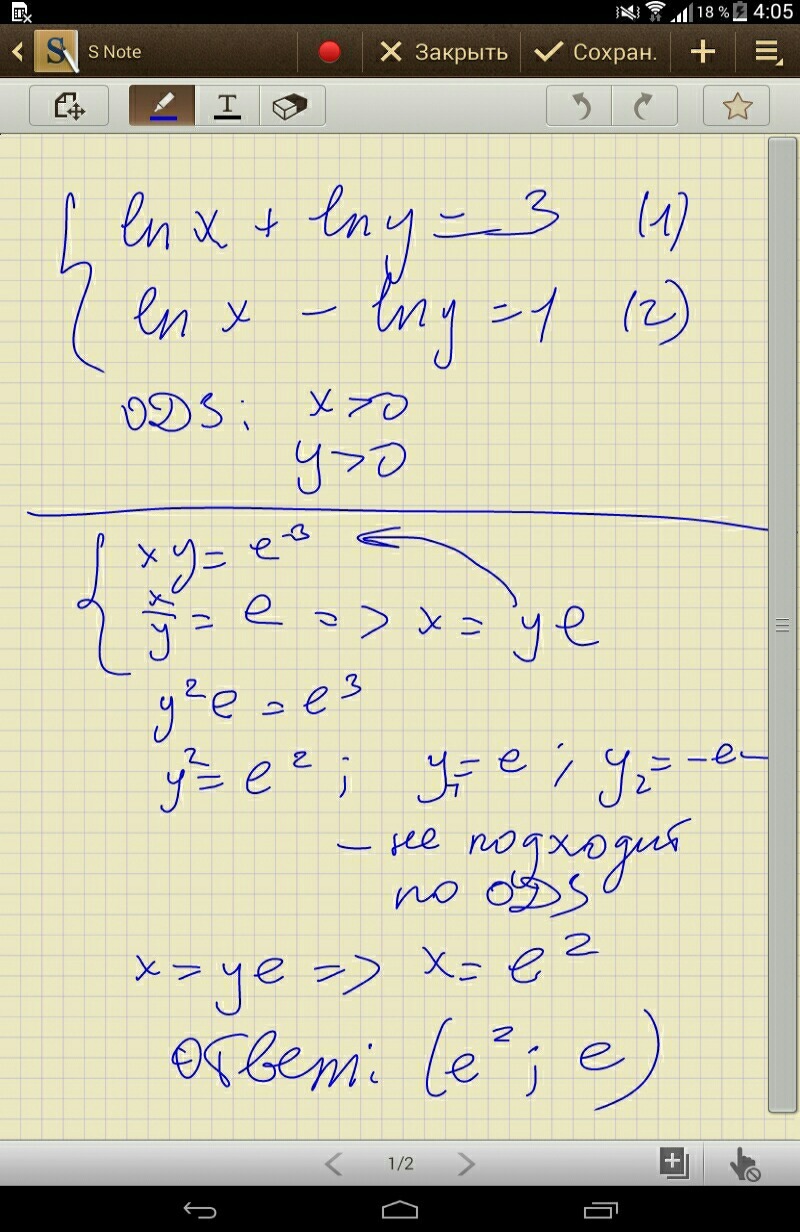 18 % 4:05
S Note Закрыть Сохран.
T
ln x + ln y = 3 (1)
ln x - ln y = 1 (2)
ODS: x>0
y>0
xy = e³
x/y = e => x = ye
y²e = e³
y² = e² ; y₁ = e ; y₂ = -e -
- не подходит
по ODS
x = ye => x = e²
Ответ: (e² ; e)
1/2